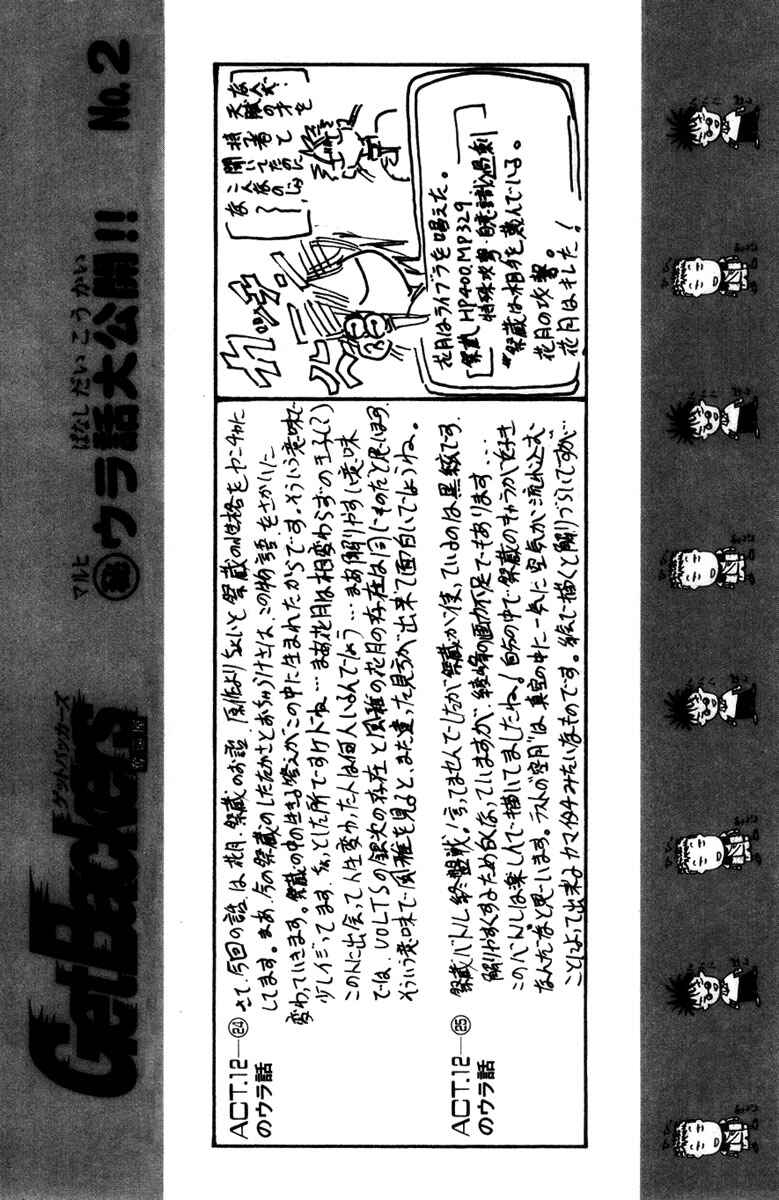 GetBackers
ゲットバッカーズ
奪還屋
マルヒ ばなし だい こう かい
㊙ウラ話大公開!! No.2
ACT.12―㉔
のウラ話
さて、今回の話は花月、祭蔵のお話。原作よりちょいと祭蔵の性格をヤンチャに
してます。まあ、今の祭蔵のしたたかさとおちゃらけさは、この物語をさかいに
変わっていきます。祭蔵の中の生きる答えがこの中に生まれたからです。そういう意味で
少しイジってます、私とした所ですけドね…まあ花月は相変わらずの王子(?)
この人に出会って人生変わった人は何人いるんでしょう…まあ解りやすい意味
では、VOLTSの銀次の存在と風雅の花月の存在は同じものだと思います。
そういう意味で風雅を見ると、また違った見方が出来て面白いでしょうね。
ACT.12―㉕
のウラ話
祭蔵バトル終盤戦!言ってませんでしたが祭蔵が使っているのは黒絃です。
解りやすくするため白くなっていますが、綾峰の画力不足でもあります…
このバトルは楽しんで描いてましたね!自分の中で祭蔵のキャラが好き
なんだなと思います。ラストの空月は真空の中に一気に空気が流れ込む
ことによって出来るカマイタチみたいなものです。絵で描くと解りづらいですが…
カッチーン
花月はライブラを唱えた。
祭蔵 HP400、MP329
特殊攻撃・自意識過剰
*祭蔵は相手を蔑んでいる。
花月の攻撃。
花月はキレた!
天賦の才を
持つ者と
聞いていたのに